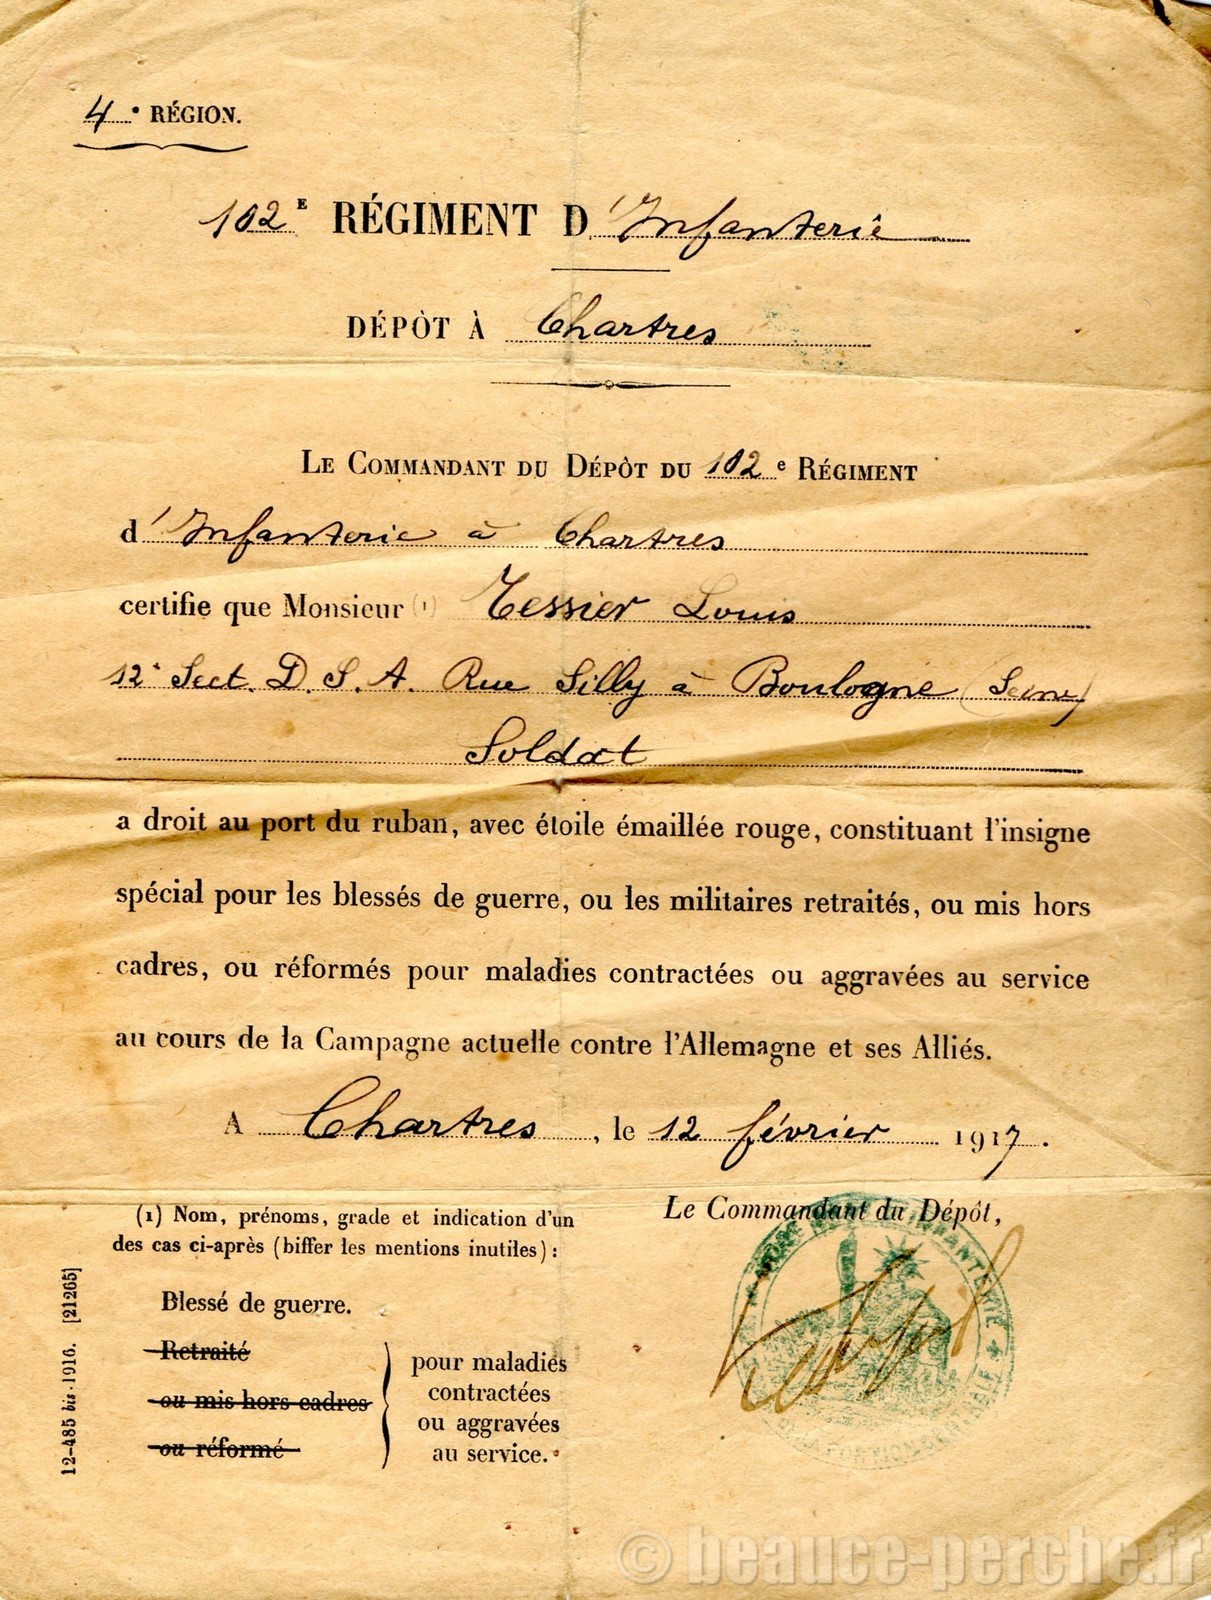 4e RÉGION.
102E RÉGIMENT D'Infanterie
DÉPÔT À Chartres
LE COMMANDANT DU DÉPÔT DU 102e RÉGIMENT
d'Infanterie à Chartres
certifie que Monsieur (1) Tessier Louis
12e Sect. D. S. A. Rue Silly à Boulogne (Seine)
Soldat
a droit au port du ruban, avec étoile émaillée rouge, constituant l'insigne
spécial pour les blessés de guerre, ou les militaires retraités, ou mis hors
cadres, ou réformés pour maladies contractées ou aggravées au service
au cours de la Campagne actuelle contre l'Allemagne et ses Alliés.
A Chartres, le 12 février 1917.
Le Commandant du Dépôt,
(1) Nom, prénoms, grade et indication d'un
des cas ci-après (biffer les mentions inutiles) :
Blessé de guerre.
Retraité
ou mis hors cadres
ou réformé
pour maladies
contractées
ou aggravées
au service.
12-485 bis-1916. [21265]
© beauce-perche.fr